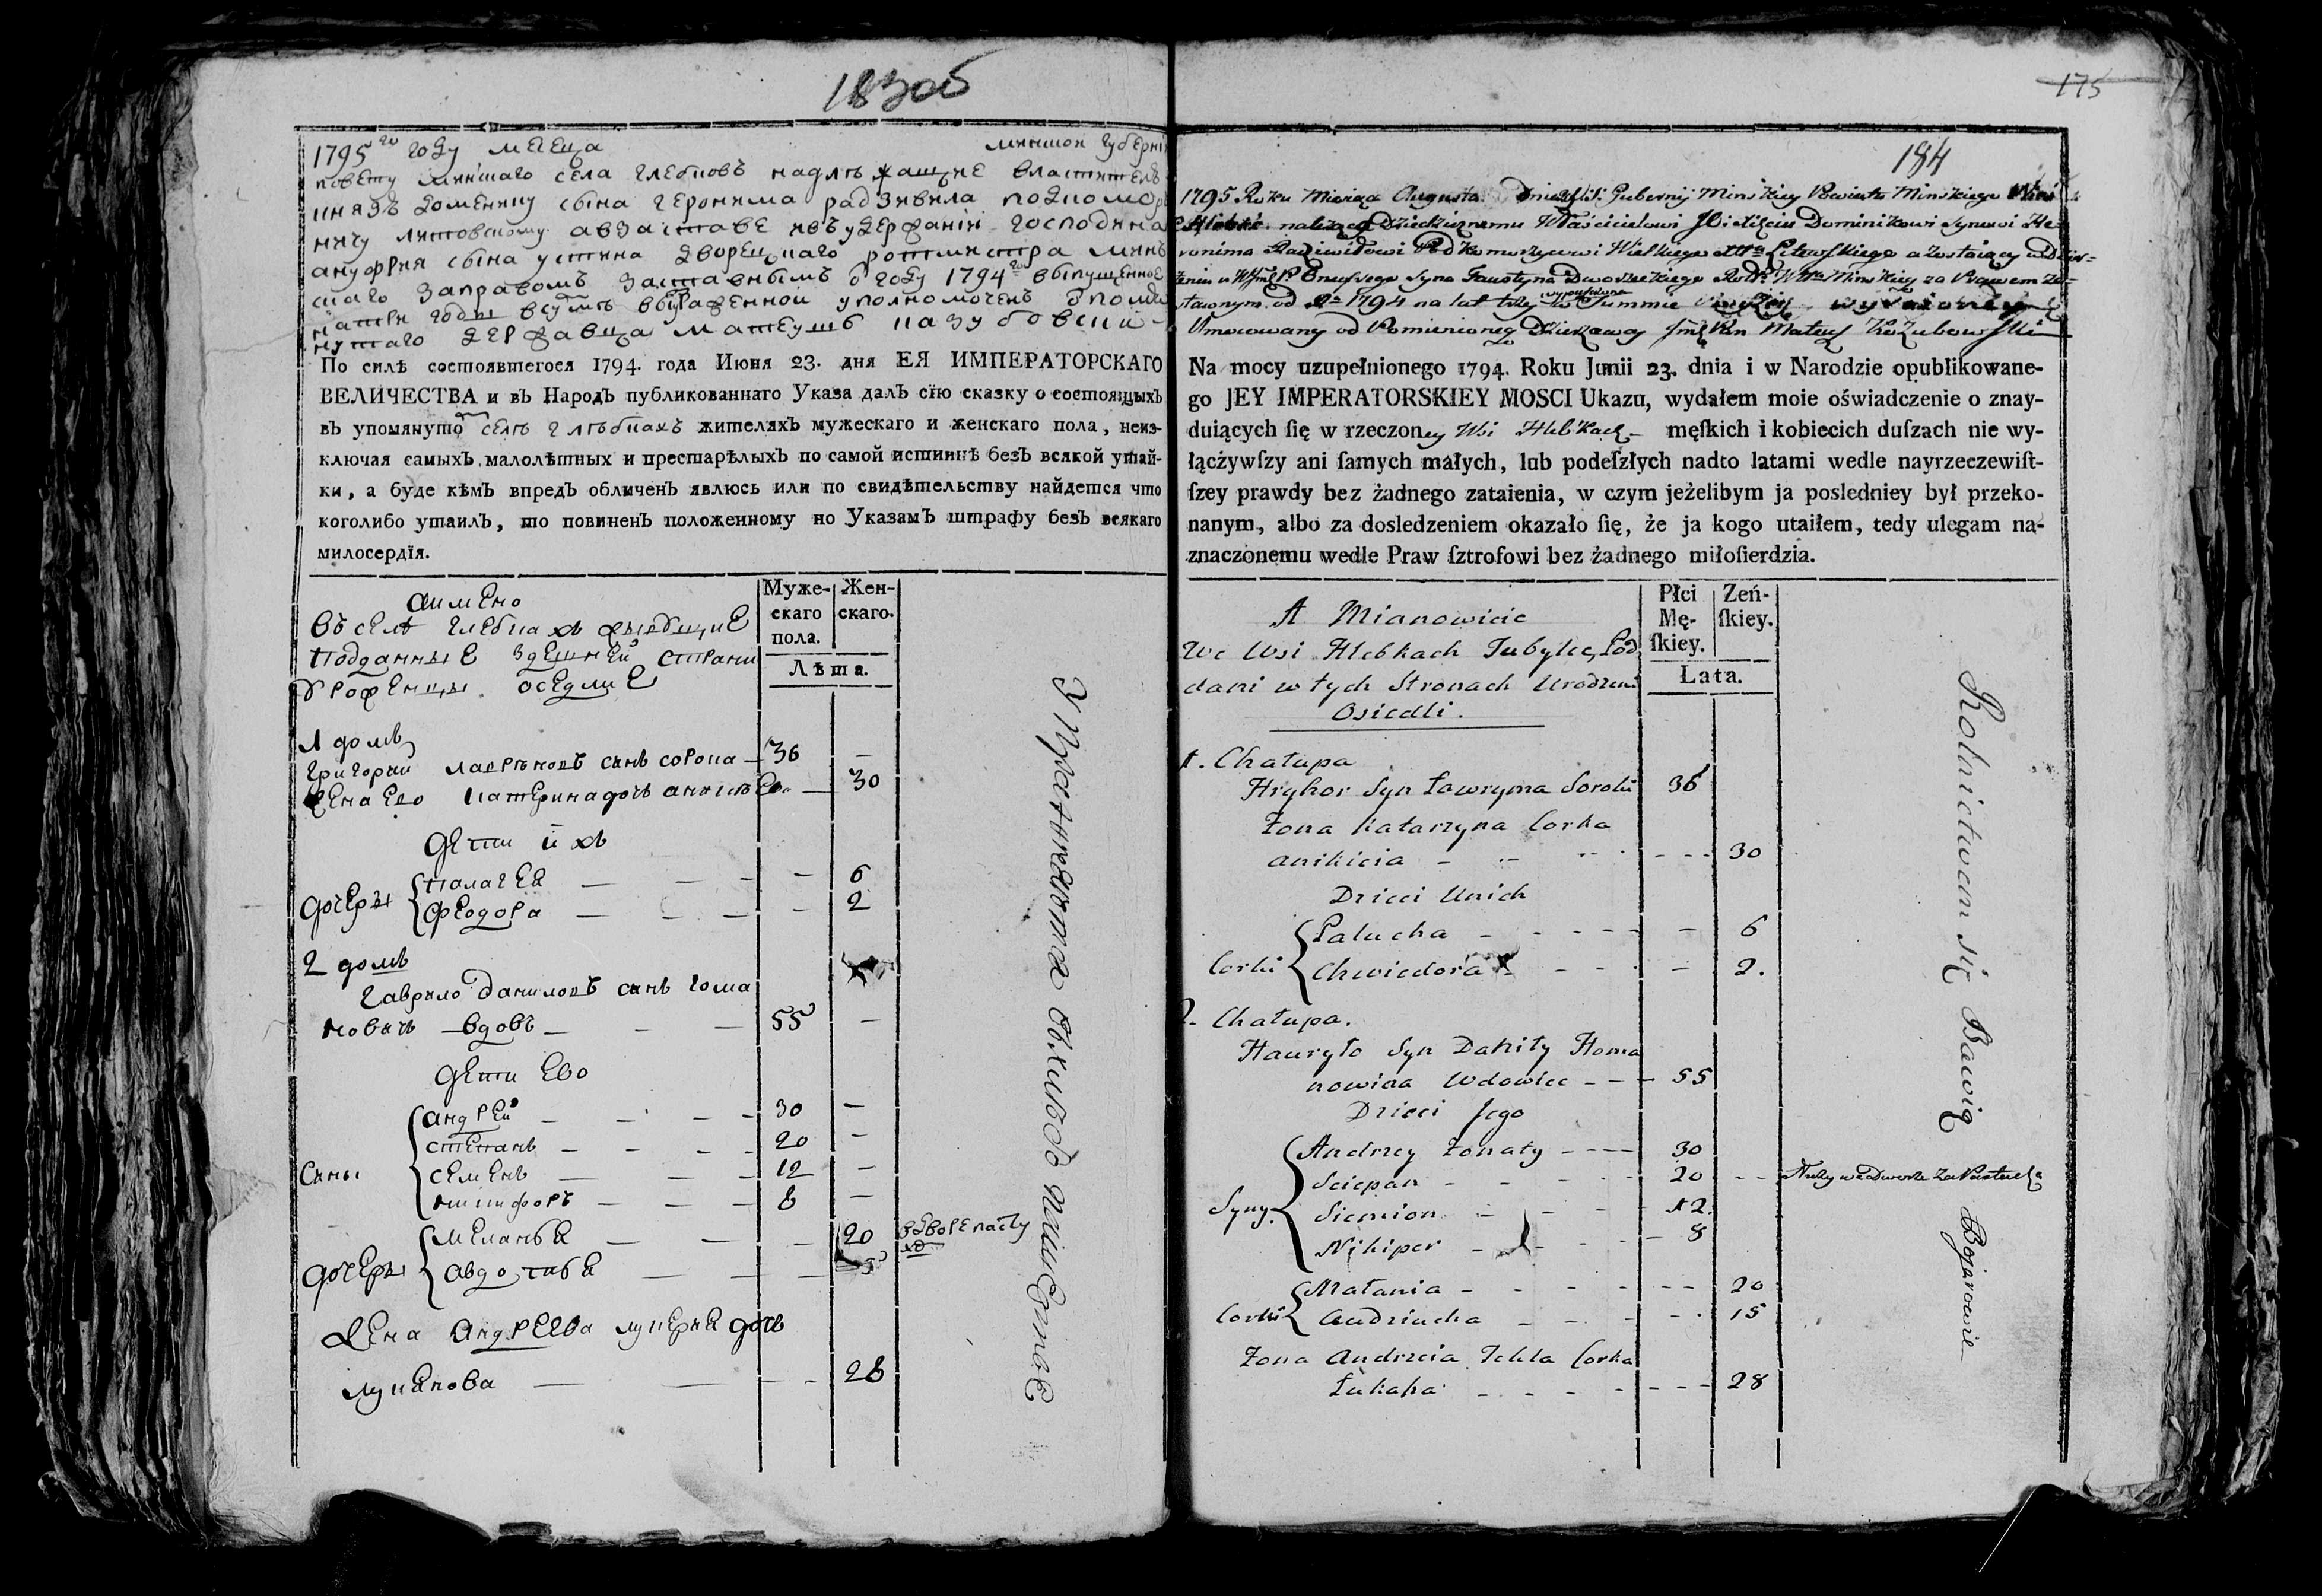 183об
1795го году месеца минской губерни
повету минского села глебковъ надлѣжащие властителю
князь доменику сына геронима радзивила подкомор
ничу литовскому авзаставе ивъ удержании господина
ануфрия сына устина дворецкаго ротмистра минъ
скаго заправомъ заставнымъ 6 году 1794го выпущенное
годы всумѣ выраженной уполномоченъ
нутаго державца матеушъ козубовски
По силѣ состоявшегося 1794. года Июня 23. дня ЕЯ ИМПЕРАТОРСКАГО
ВЕЛИЧЕСТВА и въ Народъ публикованнаго Указа далъ сїю сказку о состоящыхъ
въ упомянуто селѣ глѣбкахъ жителяхъ мужескаго и женскаго пола, неиз-
ключая самыхъ малолѣтныхъ и престарѣлыхъ по самой истиннѣ безъ всякой утай-
ки, а буде кѣмъ впредь обличенъ явлюсь или по свидѣтельству найдется что
коголибо утаилъ, то повиненъ положенному по Указамъ штрафу безъ всякаго
милосердїя.
Муже-
скаго
пола.
Жен-
скаго.
Лѣта.
аимено
въ селѣ глебкахъ живущие
подданные здешней страни
урожинцы оседлие
1 домъ
григорий лаврѣновъ синъ сорока — 36 —
жена его катерина дочь аникѣева — 30
дети ихъ
дочеры
палагея — — — — 6
феодора — — — — 2
2 домъ
гаврило даниловъ синъ гома
новичъ вдовъ — — — 55 —
дети ево
Сины
андрей — — — — 30 —
степанъ — — — — 20 —
семенъ — — — 12 —
никифоръ — — — 8 —
дочеры
меланья — — — 20
авдотья — — —
жена андреева лукерия дочъ
лукянова — — — — 28
Упражняются вхлебо пашестве
175
184
1795 Roku Miesiąca Augusta Dnia Gubernij Minskiey Powiatu Minskiego Wieś
Hlebki należąca Dziedzicznemu Właścicielowi Xiążęciu Dominikowi Synowi He-
ronima Radziwiłowi Podkomorzycowi Wielkiego Xtta Litewskiego a zostaiący w Dzier-
żeniu u Onufrego Syna Faustyna Dworzeckiego Rotm Wdta Minskiey za Prawem Za-
stawnym od Rr 1794 na lat trzy wypuszczone w Summie wyrażoney
Umocowany od Pomienionego Dzierzawcy Jmć Pan Mateusz Kozubowski
Na mocy uzupełnionego 1794. Roku Junii 23. dnia i w Narodzie opublikowane-
go JEY IMPERATORSKIEY MOSCI Ukazu, wydałem moie oświadczenie o znay-
duiących ſię w rzeczoney Wsi Hlebkach — męſkich i kobiecich duſzach nie wy-
łączywſzy ani ſamych małych, lub podeſzłych nadto latami wedle nayrzeczewiſt-
ſzey prawdy bez żadnego zataienia, w czym jeżelibym ja posledniey był przeko-
nanym, albo za dosledzeniem okazało ſię, że ja kogo utaiłem, tedy ulegam na-
znaczonemu wedle Praw ſztrofowi bez żadnego miłoſierdzia.
Płci
Mę-
ſkiey.
Zeń-
ſkiey.
Lata.
A Mianowicie
We Wsi Hlebkach Tubylcy, Pod
dani w tych Stronach Urodzeni
Osiedli.
1. Chałupa
Hryhor Syn Ławryma Soroki 36
Żona Katarzyna Corka
Anikieia — — — 30
Dzieci Unich
Corki
Palucha — — — — 6
Chwiedora — — — — 2.
2. Chałupa.
Hauryło Syn Daniły Homa
nowicza Wdowiec — — — 55
Dzieci Jego
Syny.
Andrzey Żonaty — — — 30
Sciepan — — — — 20 — — Służy we Dworze za Pastucha
Siemion — — — — 12.
Nikiper — — — — 8
Corki
Małania — — — — 20
Audziucha — — — — 15
Żona Andrzeia Tekla Corka
Łukasza — — — — 28
Rolnictwem się Bawią Bojarowie